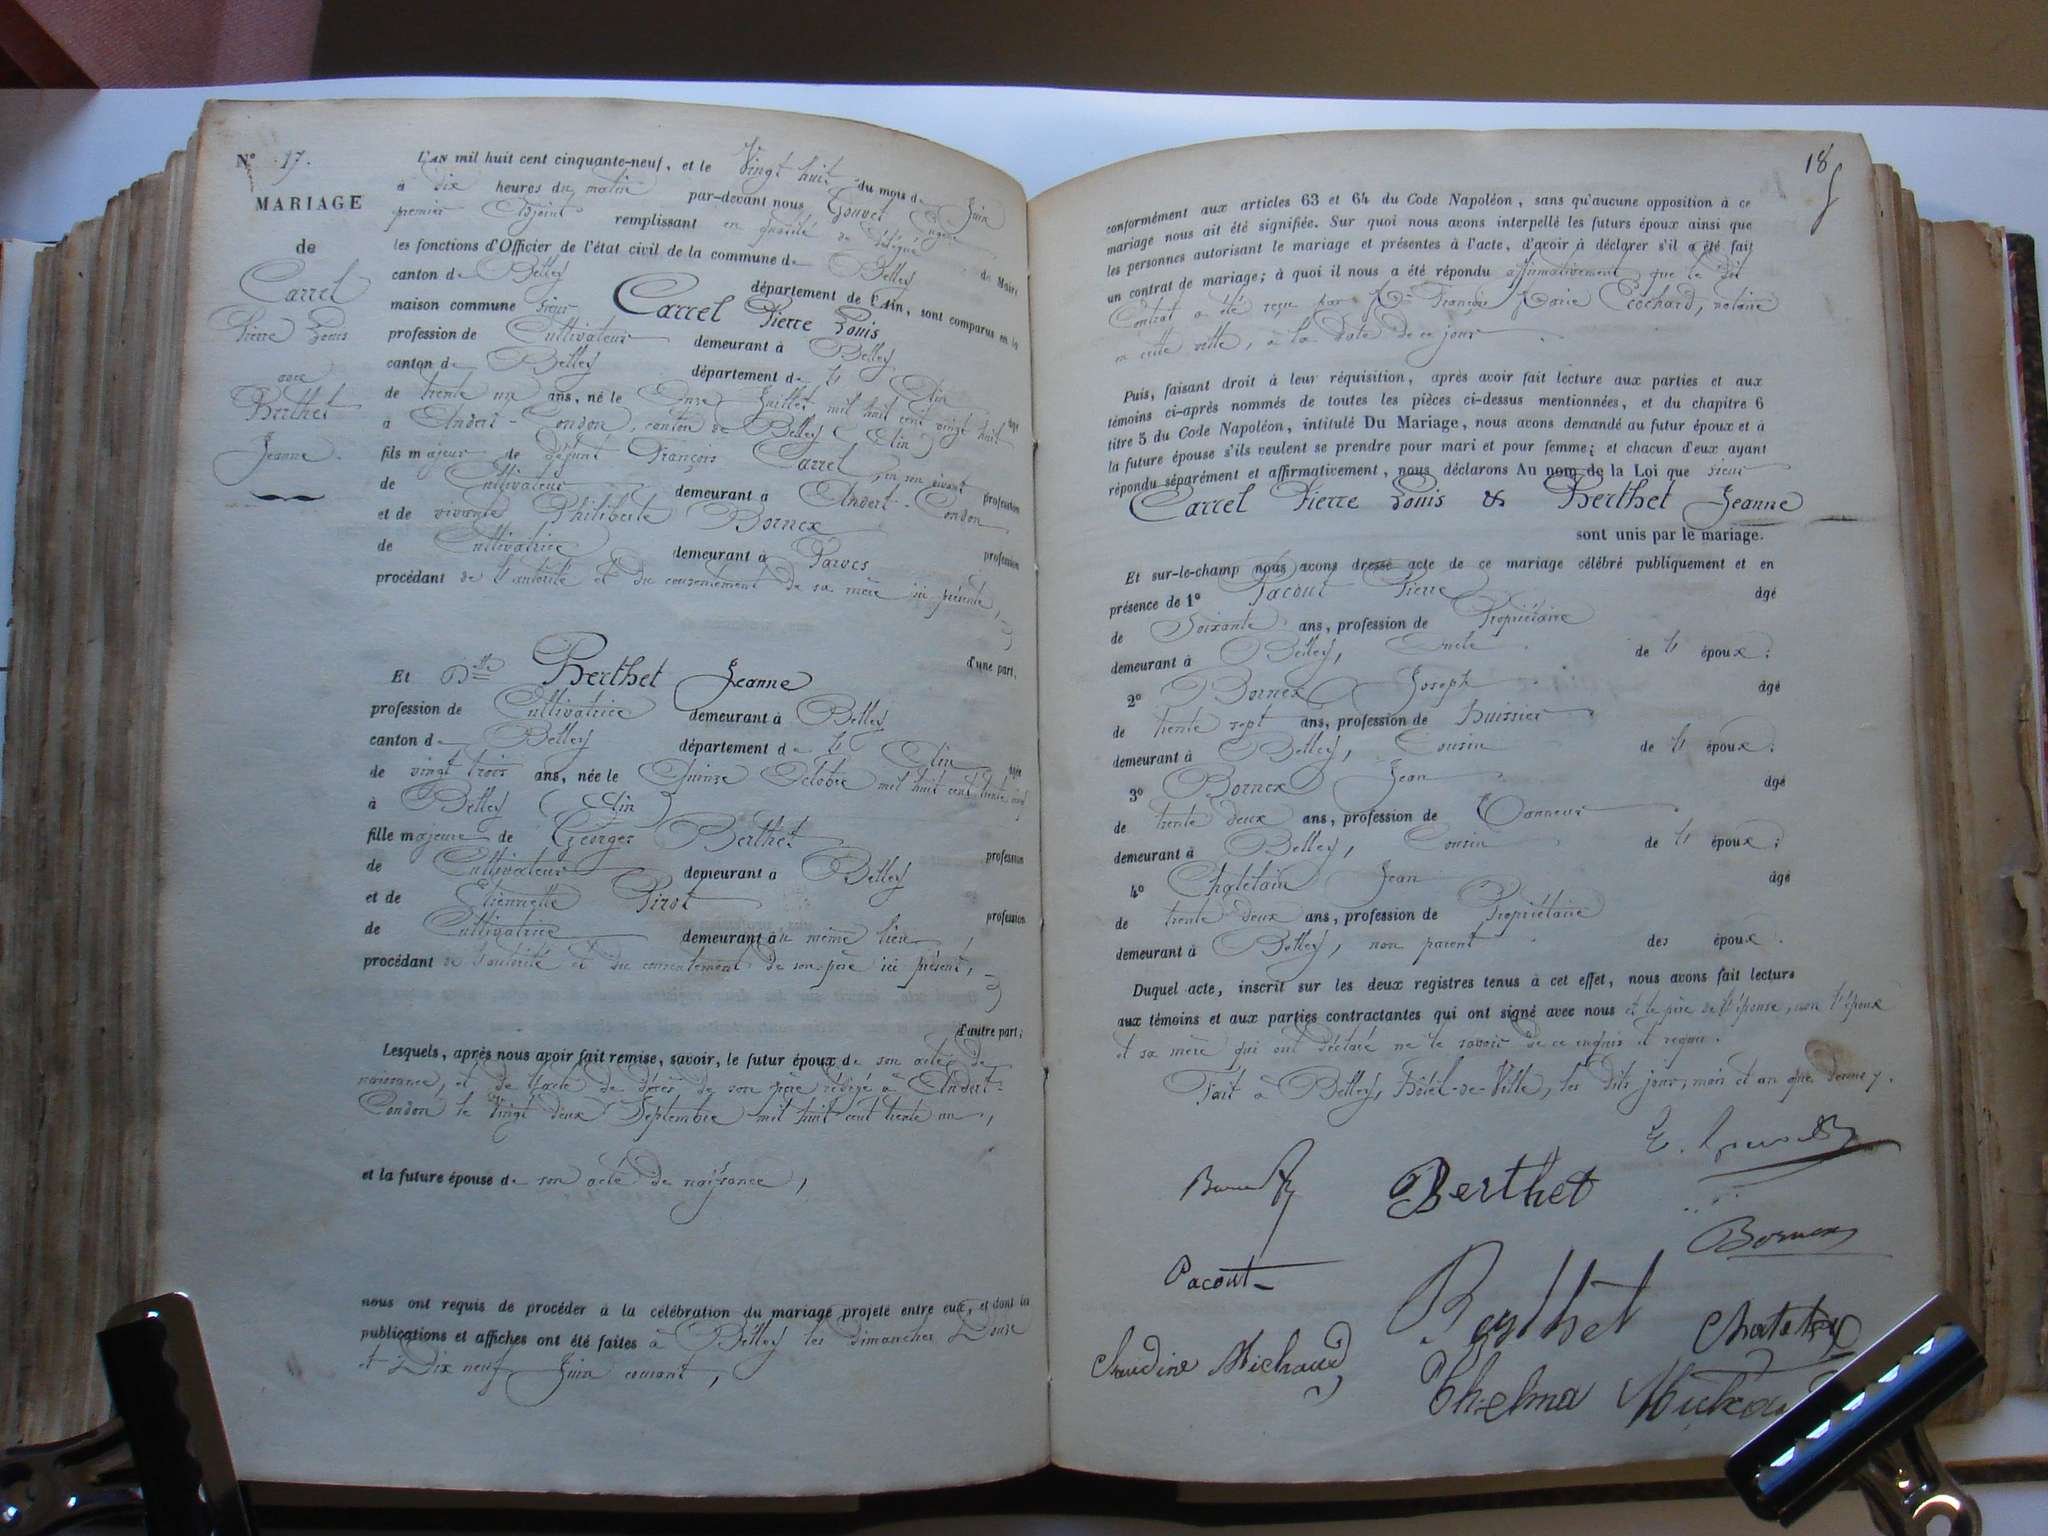 N° 17.
MARIAGE
de
Carrel
Pierre Louis
avec
Berthet
Jeanne.
L'AN mil huit cent cinquante-neuf, et le Vingt huit du mois de Juin
à dix heures du matin par-devant nous Gouvet Eugène
premier Adjoint remplissant en qualité de délégué de Maire
les fonctions d'Officier de l'état civil de la commune de Belley
canton de Belley département de l'Ain, sont comparus en la
maison commune sieur Carrel Pierre Louis
profession de Cultivateur demeurant à Belley
canton de Belley département de l'Ain âgé
de trente un ans, né le Onze Juillet mil huit cent vingt huit
à Andert-Condon, canton de Belley (Ain)
fils majeur de défunt François Carrel, en son vivant profession
de Cultivateur demeurant à Andert-Condon
et de vivante Philiberte Bornex profession
de Cultivatrice demeurant à Parves
procédant de l'autorité et du consentement de sa mère ici présente,
d'une part.
Et Dlle Berthet Jeanne
profession de Cultivatrice demeurant à Belley
canton de Belley département de l'Ain âgée
de vingt trois ans, née le Quinze Octobre mil huit cent trente cinq
à Belley (Ain)
fille majeure de Georges Berthet profession
de Cultivateur demeurant à Belley
et de Etiennette Pirot profession
de Cultivatrice demeurant au même lieu,
procédant de l'autorité et du consentement de son père ici présent,
d'autre part;
Lesquels, après nous avoir fait remise, savoir, le futur époux de son acte de
naissance, et de l'acte de décès de son père rédigé à Andert-
Condon le vingt deux Septembre mil huit cent trente un,
et la future épouse de son acte de naissance,
nous ont requis de procéder à la célébration du mariage projeté entre eux, et dont les
publications et affiches ont été faites à Belley les dimanches Douze
et Dix neuf Juin courant,
18
conformément aux articles 63 et 64 du Code Napoléon, sans qu'aucune opposition à ce
mariage nous ait été signifiée. Sur quoi nous avons interpellé les futurs époux ainsi que
les personnes autorisant le mariage et présentes à l'acte, d'avoir à déclarer s'il a été fait
un contrat de mariage; à quoi il nous a été répondu affirmativement, que le dit
Contrat a été reçu par Me François Marie Cochard, notaire
en cette ville, à la date de ce jour
Puis, faisant droit à leur réquisition, après avoir fait lecture aux parties et aux
témoins ci-après nommés de toutes les pièces ci-dessus mentionnées, et du chapitre 6
titre 5 du Code Napoléon, intitulé Du Mariage, nous avons demandé au futur époux et à
la future épouse s'ils veulent se prendre pour mari et pour femme; et chacun d'eux ayant
répondu séparément et affirmativement, nous déclarons Au nom de la Loi que sieur
Carrel Pierre Louis & Berthet Jeanne
sont unis par le mariage.
Et sur-le-champ nous avons dressé acte de ce mariage célébré publiquement et en
présence de 1° Pacout Pierre âgé
de Soixante ans, profession de Propriétaire
demeurant à Belley, Oncle de l'époux;
2° Bornex Joseph âgé
de trente sept ans, profession de Huissier
demeurant à Belley, Cousin de l'époux;
3° Bornex Jean âgé
de trente deux ans, profession de Tanneur
demeurant à Belley, Cousin de l'époux;
4° Chatelain Jean âgé
de trente deux ans, profession de Propriétaire
demeurant à Belley, non parent des époux.
Duquel acte, inscrit sur les deux registres tenus à cet effet, nous avons fait lecture
aux témoins et aux parties contractantes qui ont signé avec nous et le père de l'épouse, non l'époux
et sa mère qui ont déclaré ne le savoir de ce enquis et requis.
Fait à Belley, Hôtel-de-Ville, les dits jour, mois et an que dessus.
Berthet
Bornex
Pacout
Berthet
Claudine Michaud
Thelma